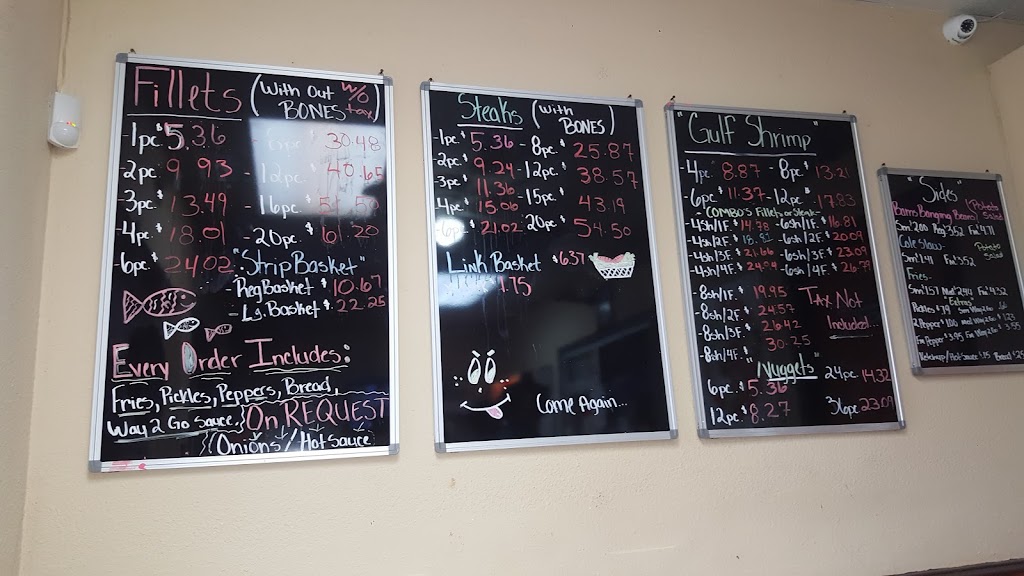 Fillets (With Out BONES) w/o tax
-1pc $5.36 - 8pc. $30.48
2pc $9.93 - 12pc. $40.65
-3pc. $13.49 - 16pc.
-4pc. $18.01 - 20pc. $61.20
6pc. $24.02
"Strip Basket"
-Reg Basket $10.67
- Lg. Basket $22.25
Every Order Includes:
Fries, Pickles, Peppers, Bread,
Way 2 Go Sauce, On REQUEST
Onions / Hot Sauce
Steaks (With BONES)
-1pc. $5.36 - 8pc. $25.87
-2pc. $9.24 - 12pc. $38.57
-3pc. $11.36 - 15pc. $43.19
4pc. $15.06 20pc. $54.50
-6pc. $21.02
Link Basket $6.37
1.75
Come Again...
"Gulf Shrimp"
-4pc. $8.87 - 8pc. $13.21
-6pc. $11.37 - 12pc. $17.83
- COMBO'S Fillets or Steak -
-4sh/1F. $14.98 -6sh/1F. $16.81
-4sh/2F. -6sh/2F. $20.09
-4sh/3F $21.66 -6sh/3F. $23.09
-4sh/4F. -6sh/4F. $26.79
-8sh/1F. $19.95
-8sh/2F. $24.57
-8sh/3F. $26.42
-8sh/4F. $30.25
Tax Not
Included...
"Nuggets"
6pc. $5.36 24pc 14.32
12pc. $8.27 36pc 23.09
"Sides"
(Potato Salad)
Sm 2.09 Reg 3.52 Fm 4.71
Cole Slaw- Potato Salad
Sm 1.41 Fm 3.52
Fries-
Sm 1.57 Med 2.94 Fm 4.32
"Extras"